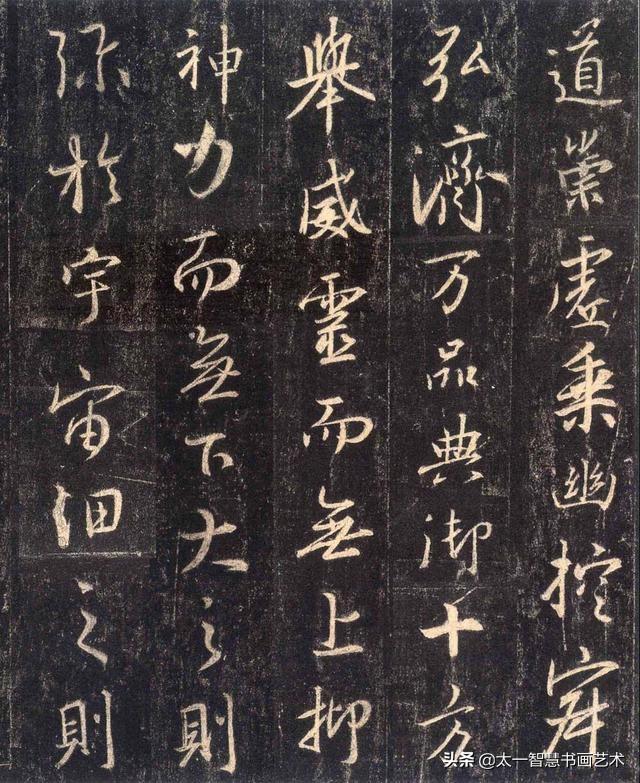 道崇虛乘幽控寂
弘濟万品典御十方
舉威靈而無上抑
神力而無下大之則
弥於宇宙細之則
头条 @太一智慧书画艺术